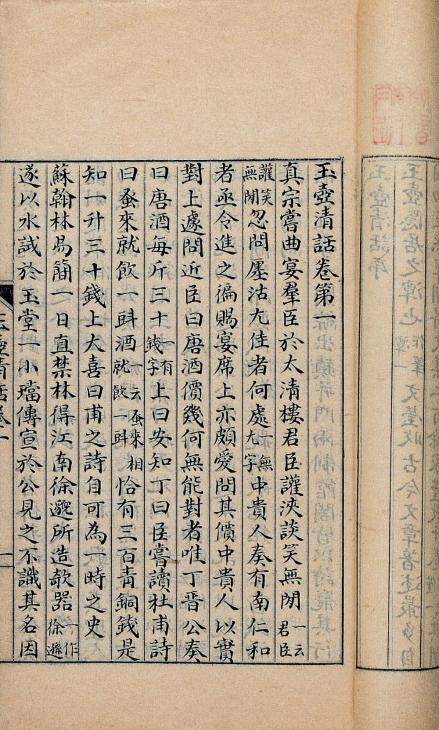 玉壺清話卷第一
真宗嘗曲宴羣臣於太清樓君臣讙浹談笑無閒一云君臣
讙笑無閒忽問㕓沽尤佳者何處一無尤字中貴人奏有南仁和
者亟令進之徧賜宴席上亦頗愛問其價中貴人以實
對上遽問近臣曰唐酒價幾何無能對者唯丁晉公奏
曰唐酒每升三十一有錢字上曰安知丁曰臣嘗讀杜甫詩
曰蚤來就飲一㪷酒一云蚤來相就飲一㪷恰有三百青銅錢是
知一升三十錢上大喜曰甫之詩自可為一時之史
蘇翰林易簡一日直禁林得江南徐邈所造欹器一作徐遜
遂以水試於玉堂一小璫傳宣於公見之不識其名因
玉壺清話卷一
一